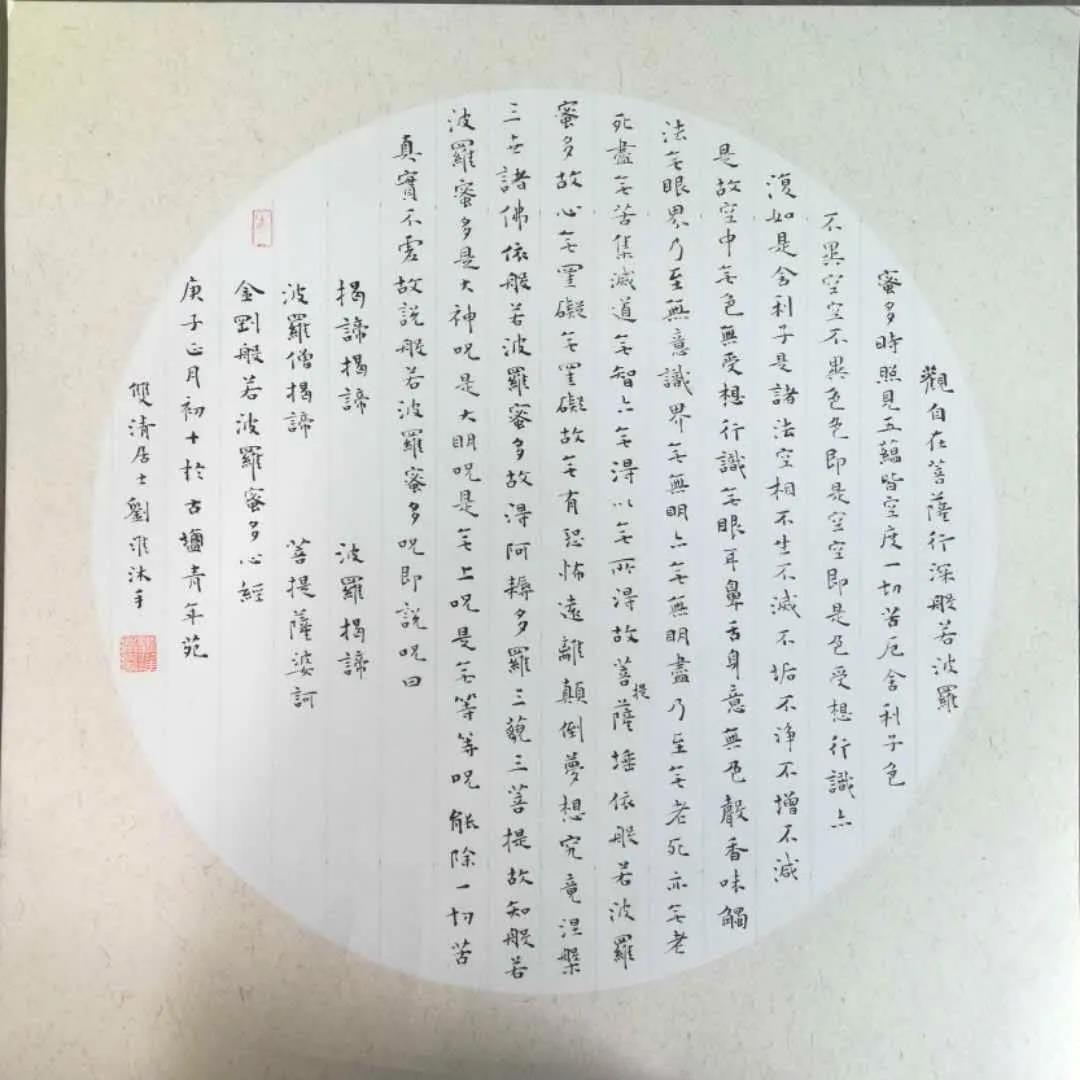 觀自在菩薩行深般若波羅
蜜多時照見五蘊皆空度一切苦厄舍利子色
不異空空不異色色即是空空即是色受想行識亦
復如是舍利子是諸法空相不生不滅不垢不淨不增不減
是故空中无色無受想行識无眼耳鼻舌身意無色聲香味觸
法无眼界乃至無意識界无無明亦无無明盡乃至无老死亦无老
死盡无苦集滅道无智亦无得以无所得故菩提薩埵依般若波羅
蜜多故心无罣礙无罣礙故无有恐怖遠離顛倒夢想究竟涅槃
三世諸佛依般若波羅蜜多故得阿耨多羅三藐三菩提故知般若
波羅蜜多是大神咒是大明咒是无上咒是无等等咒能除一切苦
真實不虛故說般若波羅蜜多咒即說咒曰
揭諦揭諦 波羅揭諦
波羅僧揭諦 菩提薩婆訶
金剛般若波羅蜜多心經
庚子正月初十於古壚青年苑
雙清居士劉淮沐手